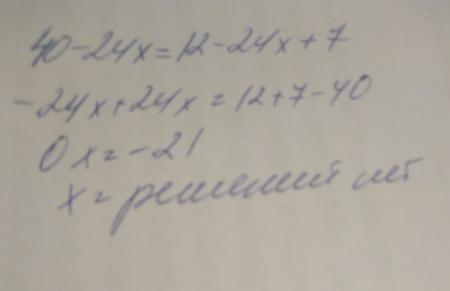 40-24x=12-24x+7
-24x+24x=12+7-40
0x=-21
x= решений нет